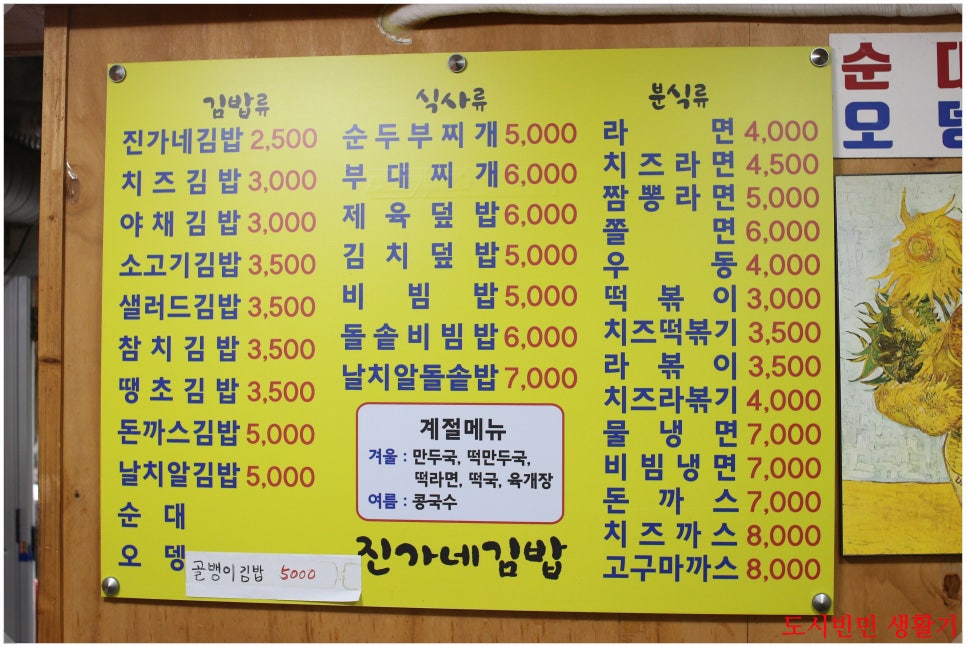 김밥류
진가네김밥 2,500
치즈김밥 3,000
야채김밥 3,000
소고기김밥 3,500
샐러드김밥 3,500
참치김밥 3,500
땡초김밥 3,500
돈까스김밥 5,000
날치알김밥 5,000
순대
오뎅
골뱅이김밥 5000
식사류
순두부찌개 5,000
부대찌개 6,000
제육덮밥 6,000
김치덮밥 5,000
비빔밥 5,000
돌솥비빔밥 6,000
날치알돌솥밥 7,000
계절메뉴
겨울 : 만두국, 떡만두국,
떡라면, 떡국, 육개장
여름 : 콩국수
진가네김밥
분식류
라면 4,000
치즈라면 4,500
짬뽕라면 5,000
쫄면 6,000
우동 4,000
떡볶이 3,000
치즈떡볶기 3,500
라볶이 3,500
치즈라볶기 4,000
물냉면 7,000
비빔냉면 7,000
돈까스 7,000
치즈까스 8,000
고구마까스 8,000
순대
오뎅
도시빈민 생활기